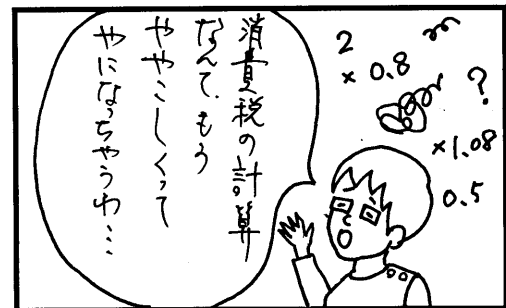 消費税の計算
なんて、もう
ややこしくって
やになっちゃうわ…
2
× 0.8
?
×1.08
0.5